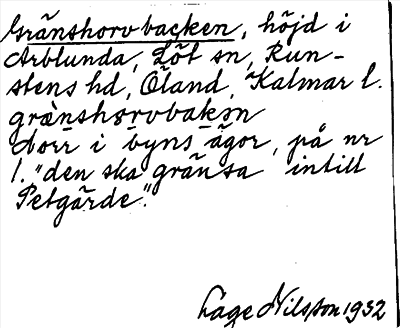 Gränshorvbacken, höjd i
Arblunda, Löt sn, Run-
stens hd, Öland, Kalmar l.
grànshorvbakən
Norr i byns ägor, på nr
1. "den ska gränsa intill
Petgärde".
Lage Nilsson 1932